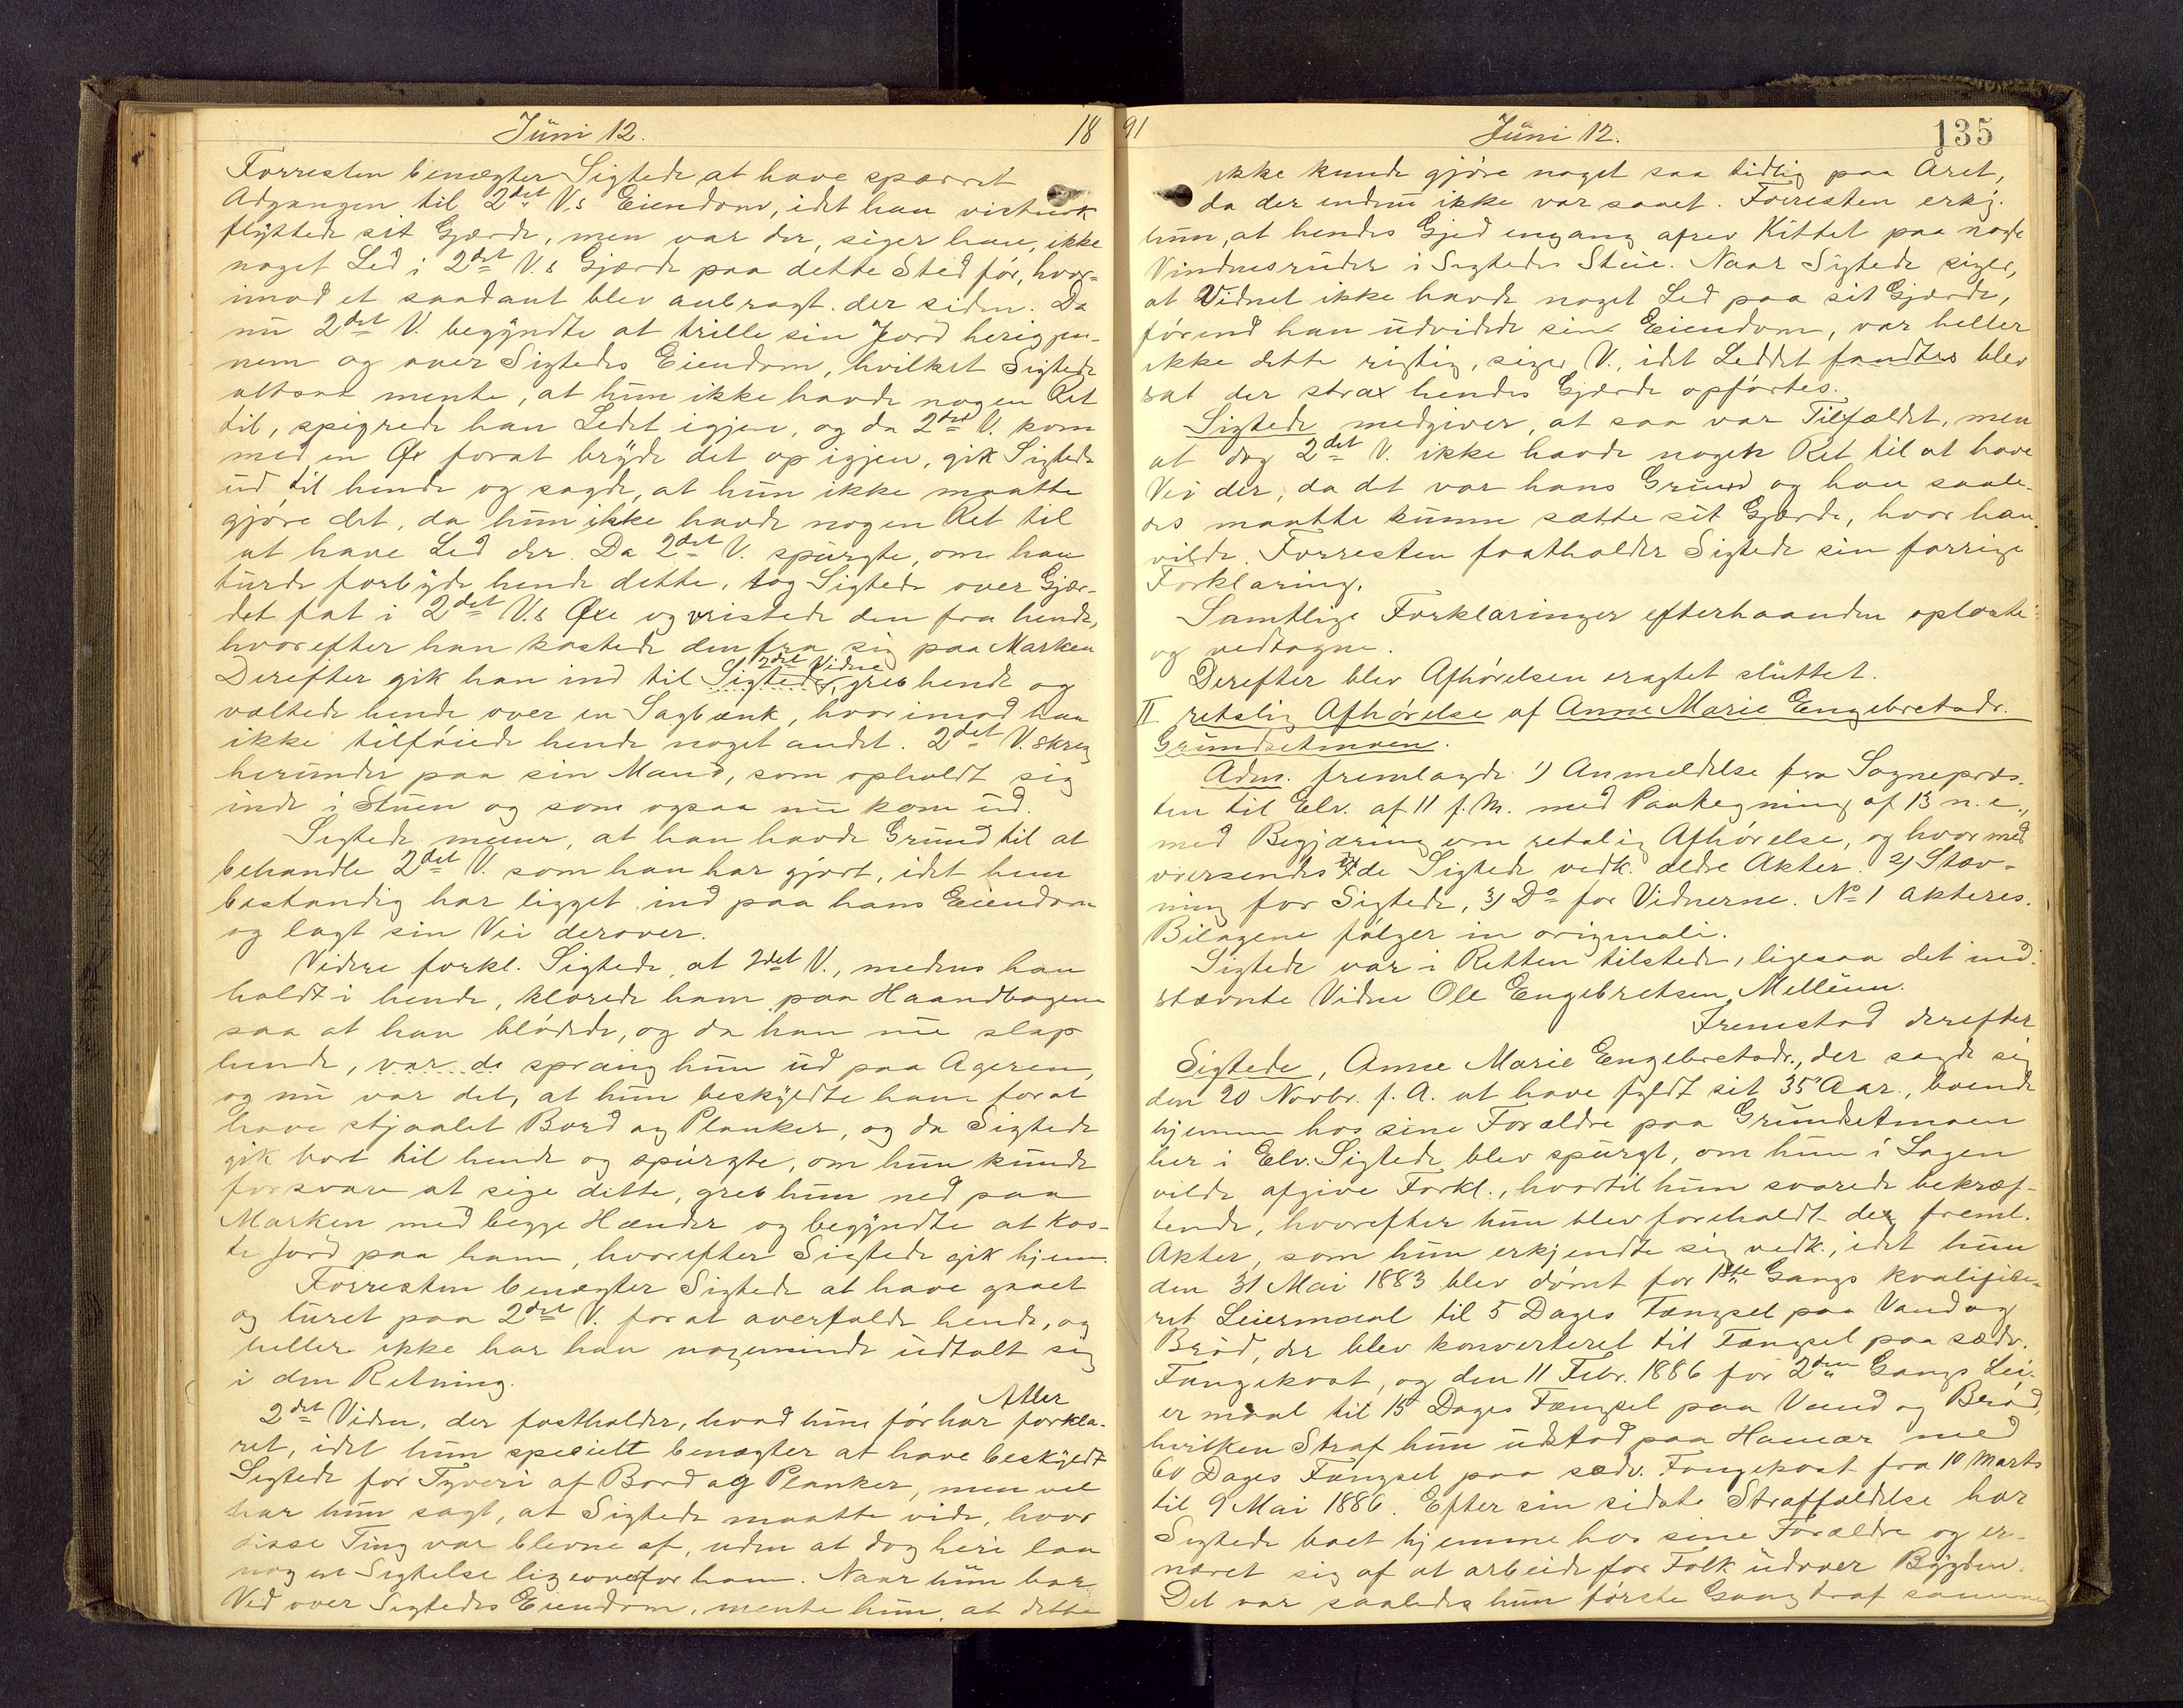 Juni 12.
18
Forresten benægter Sigtede at have spærret
Adgangen til 2det V.s Eiendom, idet han vistnok
flyttede sit Gjærde, men var der, siger han, ikke
noget Led i 2det V.s Gjærde paa dette Sted før, hvor-
imod et saadant blev anbragt der siden. Da
nu 2det V. begyndte at trille sin Jord herigjen-
nem og over Sigtedes Eiendom, hvilket Sigtede
altsaa mente, at hun ikke havde nogen Ret
til, spigrede han Ledet igjen, og da 2det V. kom
med en Øx forat bryde det op igjen, gik Sigtede
ud til hende og sagde, at hun ikke maatte
gjøre det, da hun ikke havde nogen Ret til
at have Led der. Da 2det V. spurgte, om han
turde forbyde hende dette, tog Sigtede over Gjær-
det fat i 2det V.s Øxe og vristede den fra hende,
hvorefter han kastede den fra sig paa Marken
2det Vidne
Derefter gik han ind til Sigtede, greb hende og
væltede hende over en Sagbænk, hvorimod han
ikke tilføiede hende noget andet. 2det V. skreg
herunder paa sin Mand, som opholdt sig
inde i Stuen og som ogsaa nu kom ud.
Sigtede mener, at han havde Grund til at
behandle 2det V. som han har gjort, idet hun
bestandig har ligget ind paa hans Eiendom
og lagt sin Vei derover.
Videre forkl. Sigtede, at 2det V., medens han
holdt i hende, klorede ham paa Haandbagen
saa at han blødede, og da han nu slap
hende, var de sprang hun ud paa Ageren,
og nu var det, at hun beskyldte ham for at
have stjaalet Bord og Planker, og da Sigtede
gik bort til hende og spurgte, om hun kunde
forsvare at sige dette, greb hun ned paa
Marken med begge Hænder og begyndte at kas-
te Jord paa ham, hvorefter Sigtede gik hjem.
Forresten benægter Sigtede at have gaaet
og luret paa 2det V. forat overfalde hende, og
heller ikke har han nogensinde udtalt sig
i den Retning.
Atter
2det Vidne, der fastholder, hvad hun før har forkla-
ret, idet hun specielt benægter at have beskyldt
Sigtede for Tyveri af Bord og Planker, men vel
har hun sagt, at Sigtede maatte vide, hvor
disse Ting var blevne af, uden at dog heri laa
nogen Sigtelse ligeoverfor ham. Naar hun bar
Ved over Sigtedes Eiendom, mente hun, at dette
91
Juni 12.
135
ikke kunde gjøre noget saa tidlig paa Aret,
da der endnu ikke var saaet. Forresten erkj.
hun, at hendes Gjed engang afrev Kittet paa nogle
Vinduesruder i Sigtedes Stue. Naar Sigtede siger,
at Vidnet ikke havde noget Led paa sit Gjærde,
førend han udvidede sin Eiendom, var heller
ikke dette rigtig, siger V., idet Leddet fandtes blev
sat der strax hendes Gjærde opførtes.
Sigtede medgiver, at saa var Tilfældet, men
at dog 2det V. ikke havde nogen Ret til at have
Vei der, da det var hans Grund og han saale-
des maatte kunne sætte sit Gjærde, hvor han
vilde. Forresten fastholder Sigtede sin forrige
Forklaring.
Samtlige Forklaringer efterhaanden oplæste
og vedtagne.
Derefter blev Afhørelsen eragtet sluttet.
II. retslig Afhørelse af Anne Marie Engebretsdr.
Grundsetmoen.
Adm. fremlagde 1) Anmeldelse fra Sognepræs-
ten til Elv. af 11 f. M. med Paategning af 13 n. e.,
med Begjæring om retslig Afhørelse, og hvormed
oversendes de Sigtede vedk. ældre Akter. 2) Stæv-
ning for Sigtede, 3) Do for Vidnerne. No 1 akteres.
Bilagene følger in originali.
Sigtede var i Retten tilstede, ligesaa det ind-
stævnte Vidne Ole Engebretsen Mellem.
Fremstod derefter
Sigtede, Anne Marie Engebretsdr., der sagde sig
den 20 Novbr. f. A. at have fyldt sit 35 Aar., boende
hjemme hos sine Forældre paa Grundsetmoen
her i Elv. Sigtede blev spurgt, om hun i Sagen
vilde afgive Forkl., hvortil hun svarede bekræf-
tende, hvorefter hun blev foreholdt de freml.
Akter, som hun erkjendte sig vedk., idet hun
den 31 Mai 1883 blev dømt for 1ste Gangs kvalifice-
ret Leiermaal til 5 Dages Fængsel paa Vand og
Brød, der blev konverteret til Fængsel paa sædv.
Fangekost, og den 11 Febr. 1886 for 2den Gangs Lei-
ermaal til 15 Dages Fængsel paa Vand og Brød,
hvilken Straf hun udstod paa Hamar med
60 Dages Fængsel paa sædv. Fangekost fra 10 Marts
til 9 Mai 1886. Efter sin sidste Straffældelse har
Sigtede boet hjemme hos sine Forældre og er-
næret sig af at arbeide for Folk udover Bygden.
Det var saaledes hun første Gang traf sammen